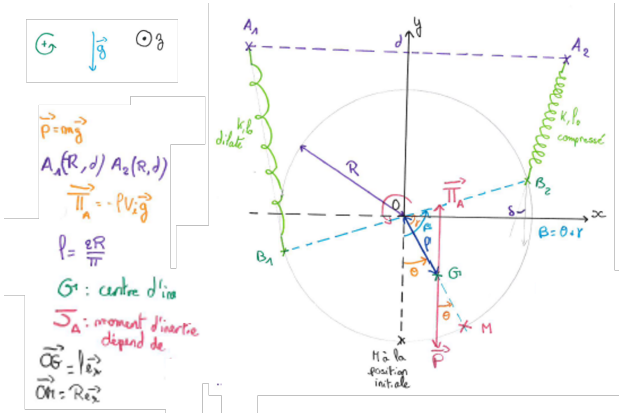 +
g⃗
z
P⃗ = mg⃗
A₁(R, d) A₂(R, d)
Π⃗_A = -ρV_i g⃗
ρ = 2R/π
G : centre d'ine
J_A : moment d'inertie
dépend de
OG⃗ = ρe⃗x
OM⃗ = Re⃗x
A₁
d
y
A₂
K, l₀
dilaté
K, l₀
compressé
R
Π⃗_A
B₂
O
x
B₁
β
ρ
θ
G
β = θ + r
θ
M
P⃗
M à la
position
initiale